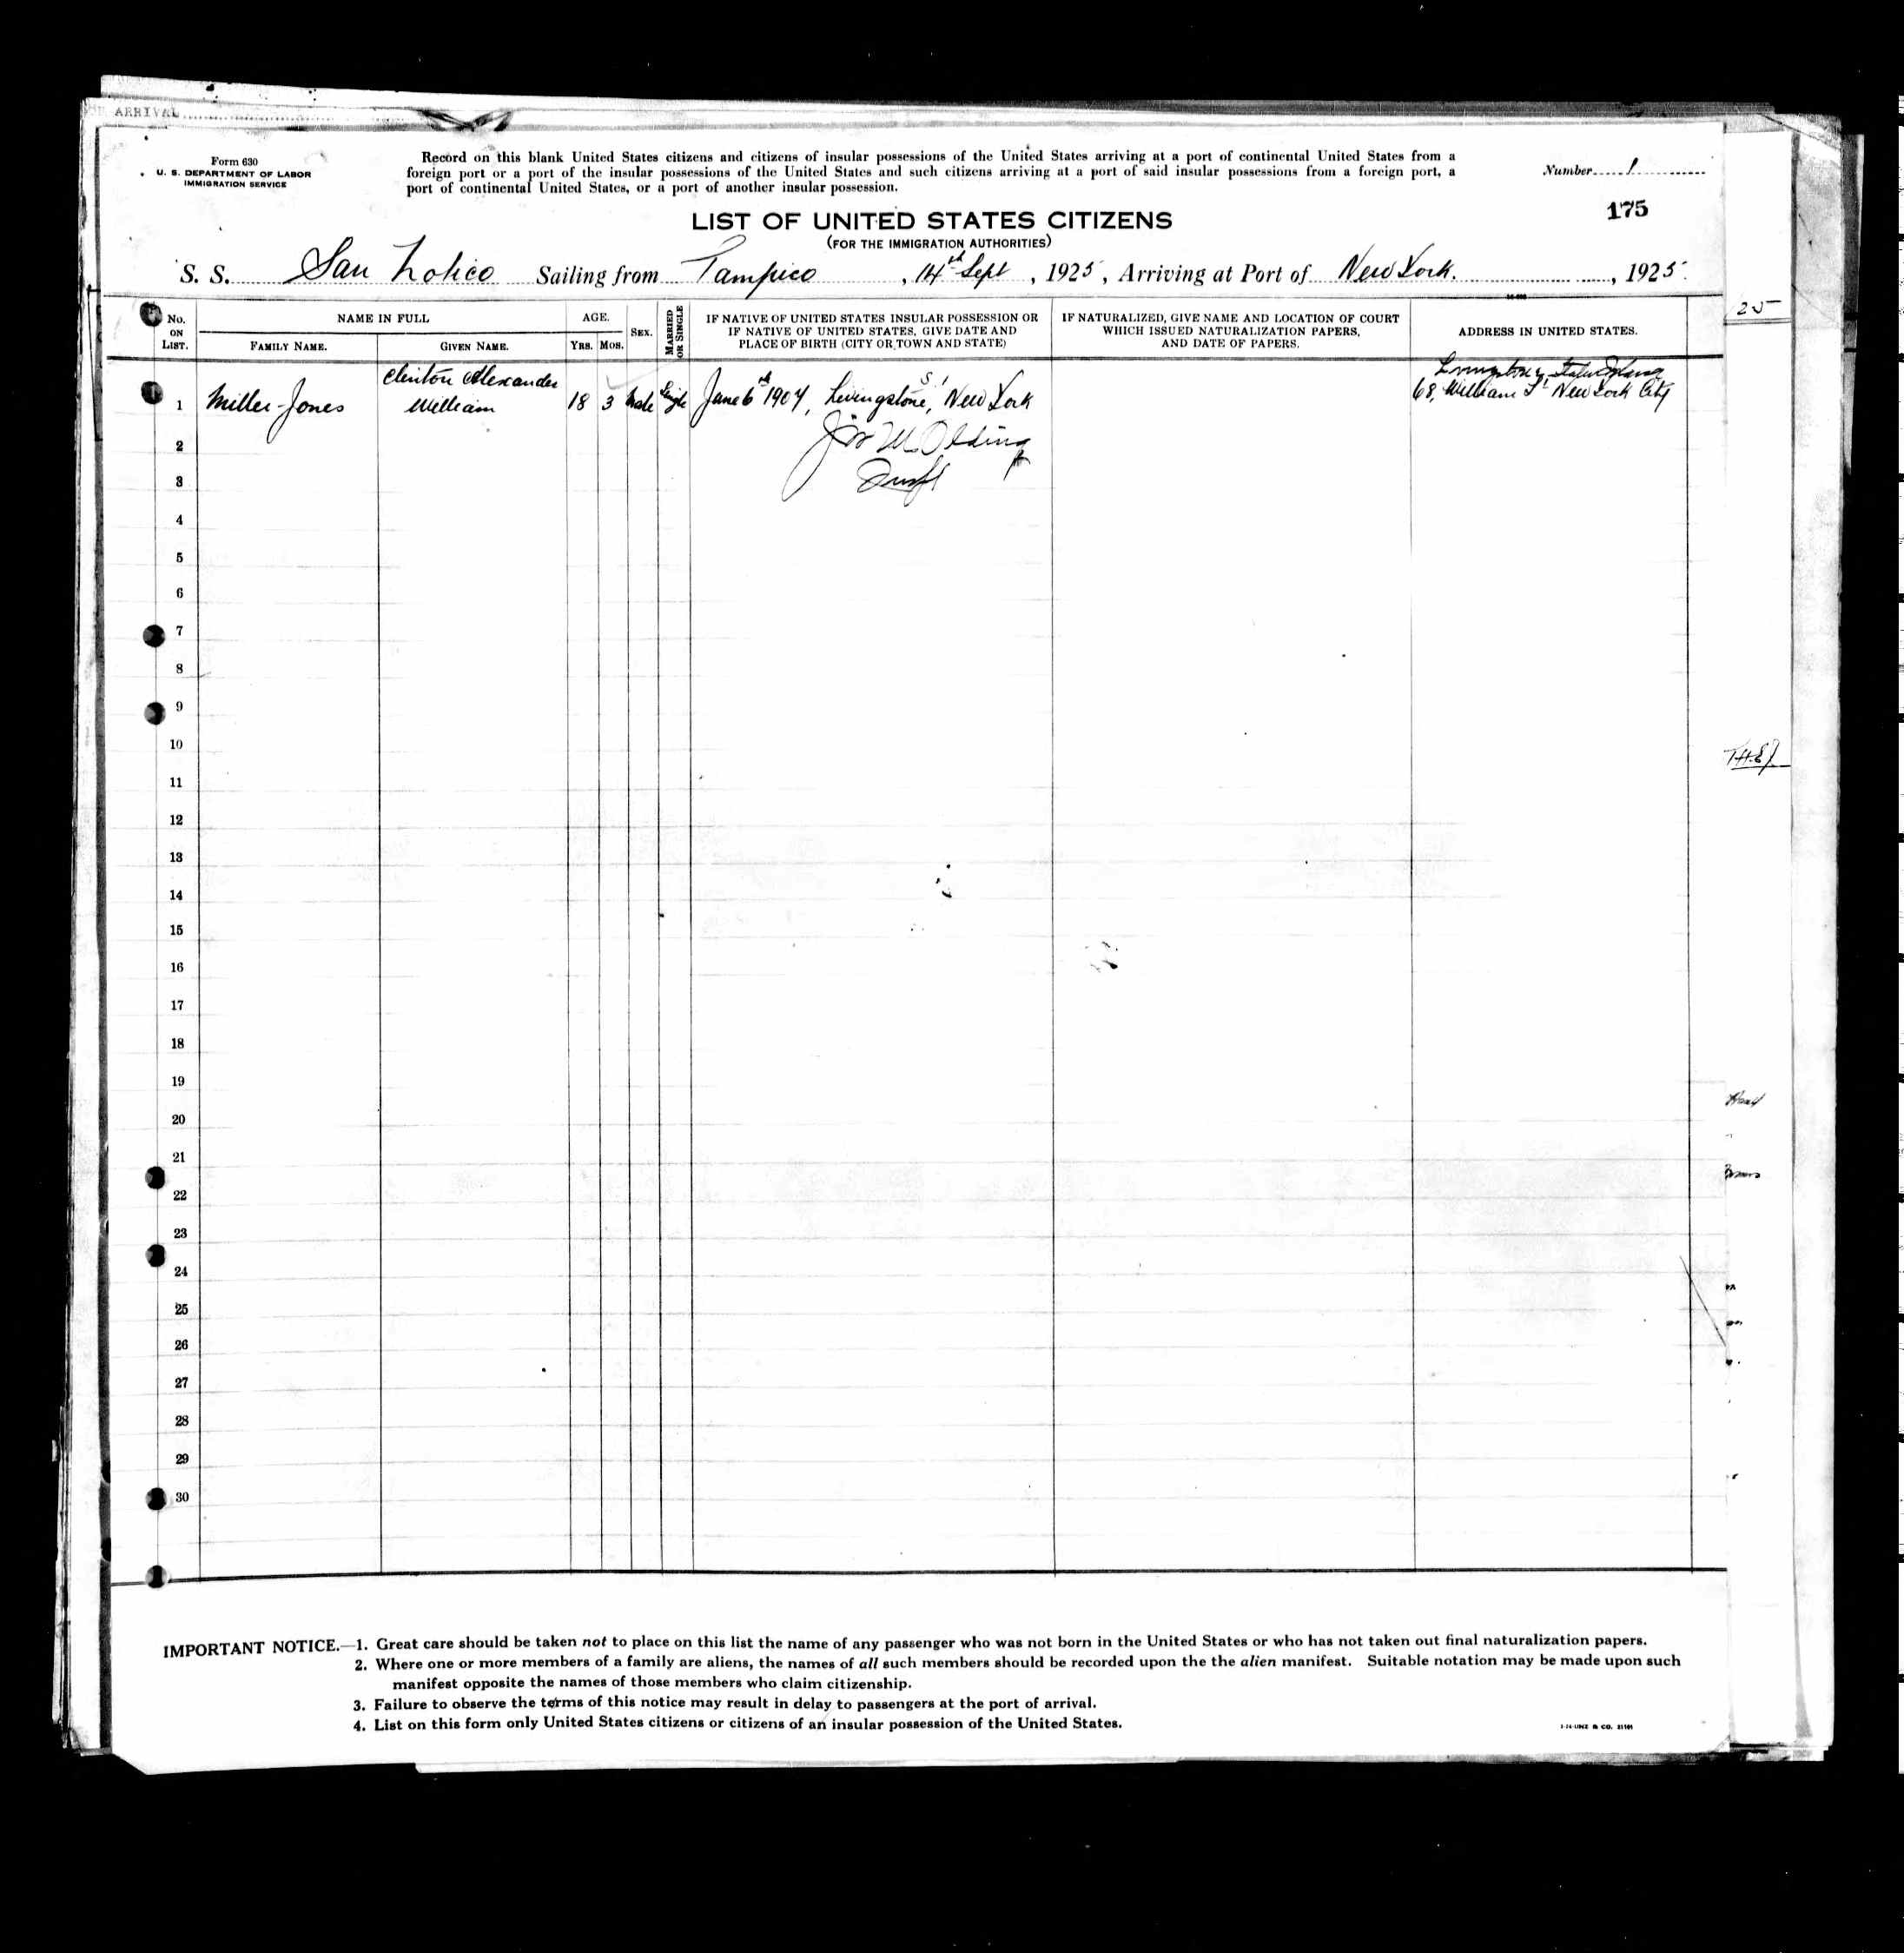 ARRIVAL
Form 630
U. S. DEPARTMENT OF LABOR
IMMIGRATION SERVICE
Record on this blank United States citizens and citizens of insular possessions of the United States arriving at a port of continental United States from a
foreign port or a port of the insular possessions of the United States and such citizens arriving at a port of said insular possessions from a foreign port, a
port of continental United States, or a port of another insular possession.
Number 1
175
LIST OF UNITED STATES CITIZENS
(FOR THE IMMIGRATION AUTHORITIES)
S. S. San Zotico Sailing from Tampico, 14th Sept, 1925, Arriving at Port of New York., 1925.
25
No. ON LIST.
NAME IN FULL
FAMILY NAME.
GIVEN NAME.
AGE.
YRS. MOS.
SEX.
MARRIED OR SINGLE
IF NATIVE OF UNITED STATES INSULAR POSSESSION OR
IF NATIVE OF UNITED STATES, GIVE DATE AND
PLACE OF BIRTH (CITY OR TOWN AND STATE)
IF NATURALIZED, GIVE NAME AND LOCATION OF COURT
WHICH ISSUED NATURALIZATION PAPERS,
AND DATE OF PAPERS.
ADDRESS IN UNITED STATES.
Clinton Alexander Livingstone, Staten Island
1 Miller-Jones William 18 3 Male Single June 6th 1907, Livingstone, S.I. New York 68, William St New York City
2
3
4
5
6
7
8
9
10
11
12
13
14
15
16
17
18
19
20
21
22
23
24
25
26
27
28
29
30
IMPORTANT NOTICE.—1. Great care should be taken not to place on this list the name of any passenger who was not born in the United States or who has not taken out final naturalization papers.
2. Where one or more members of a family are aliens, the names of all such members should be recorded upon the the alien manifest. Suitable notation may be made upon such
manifest opposite the names of those members who claim citizenship.
3. Failure to observe the terms of this notice may result in delay to passengers at the port of arrival.
4. List on this form only United States citizens or citizens of an insular possession of the United States.